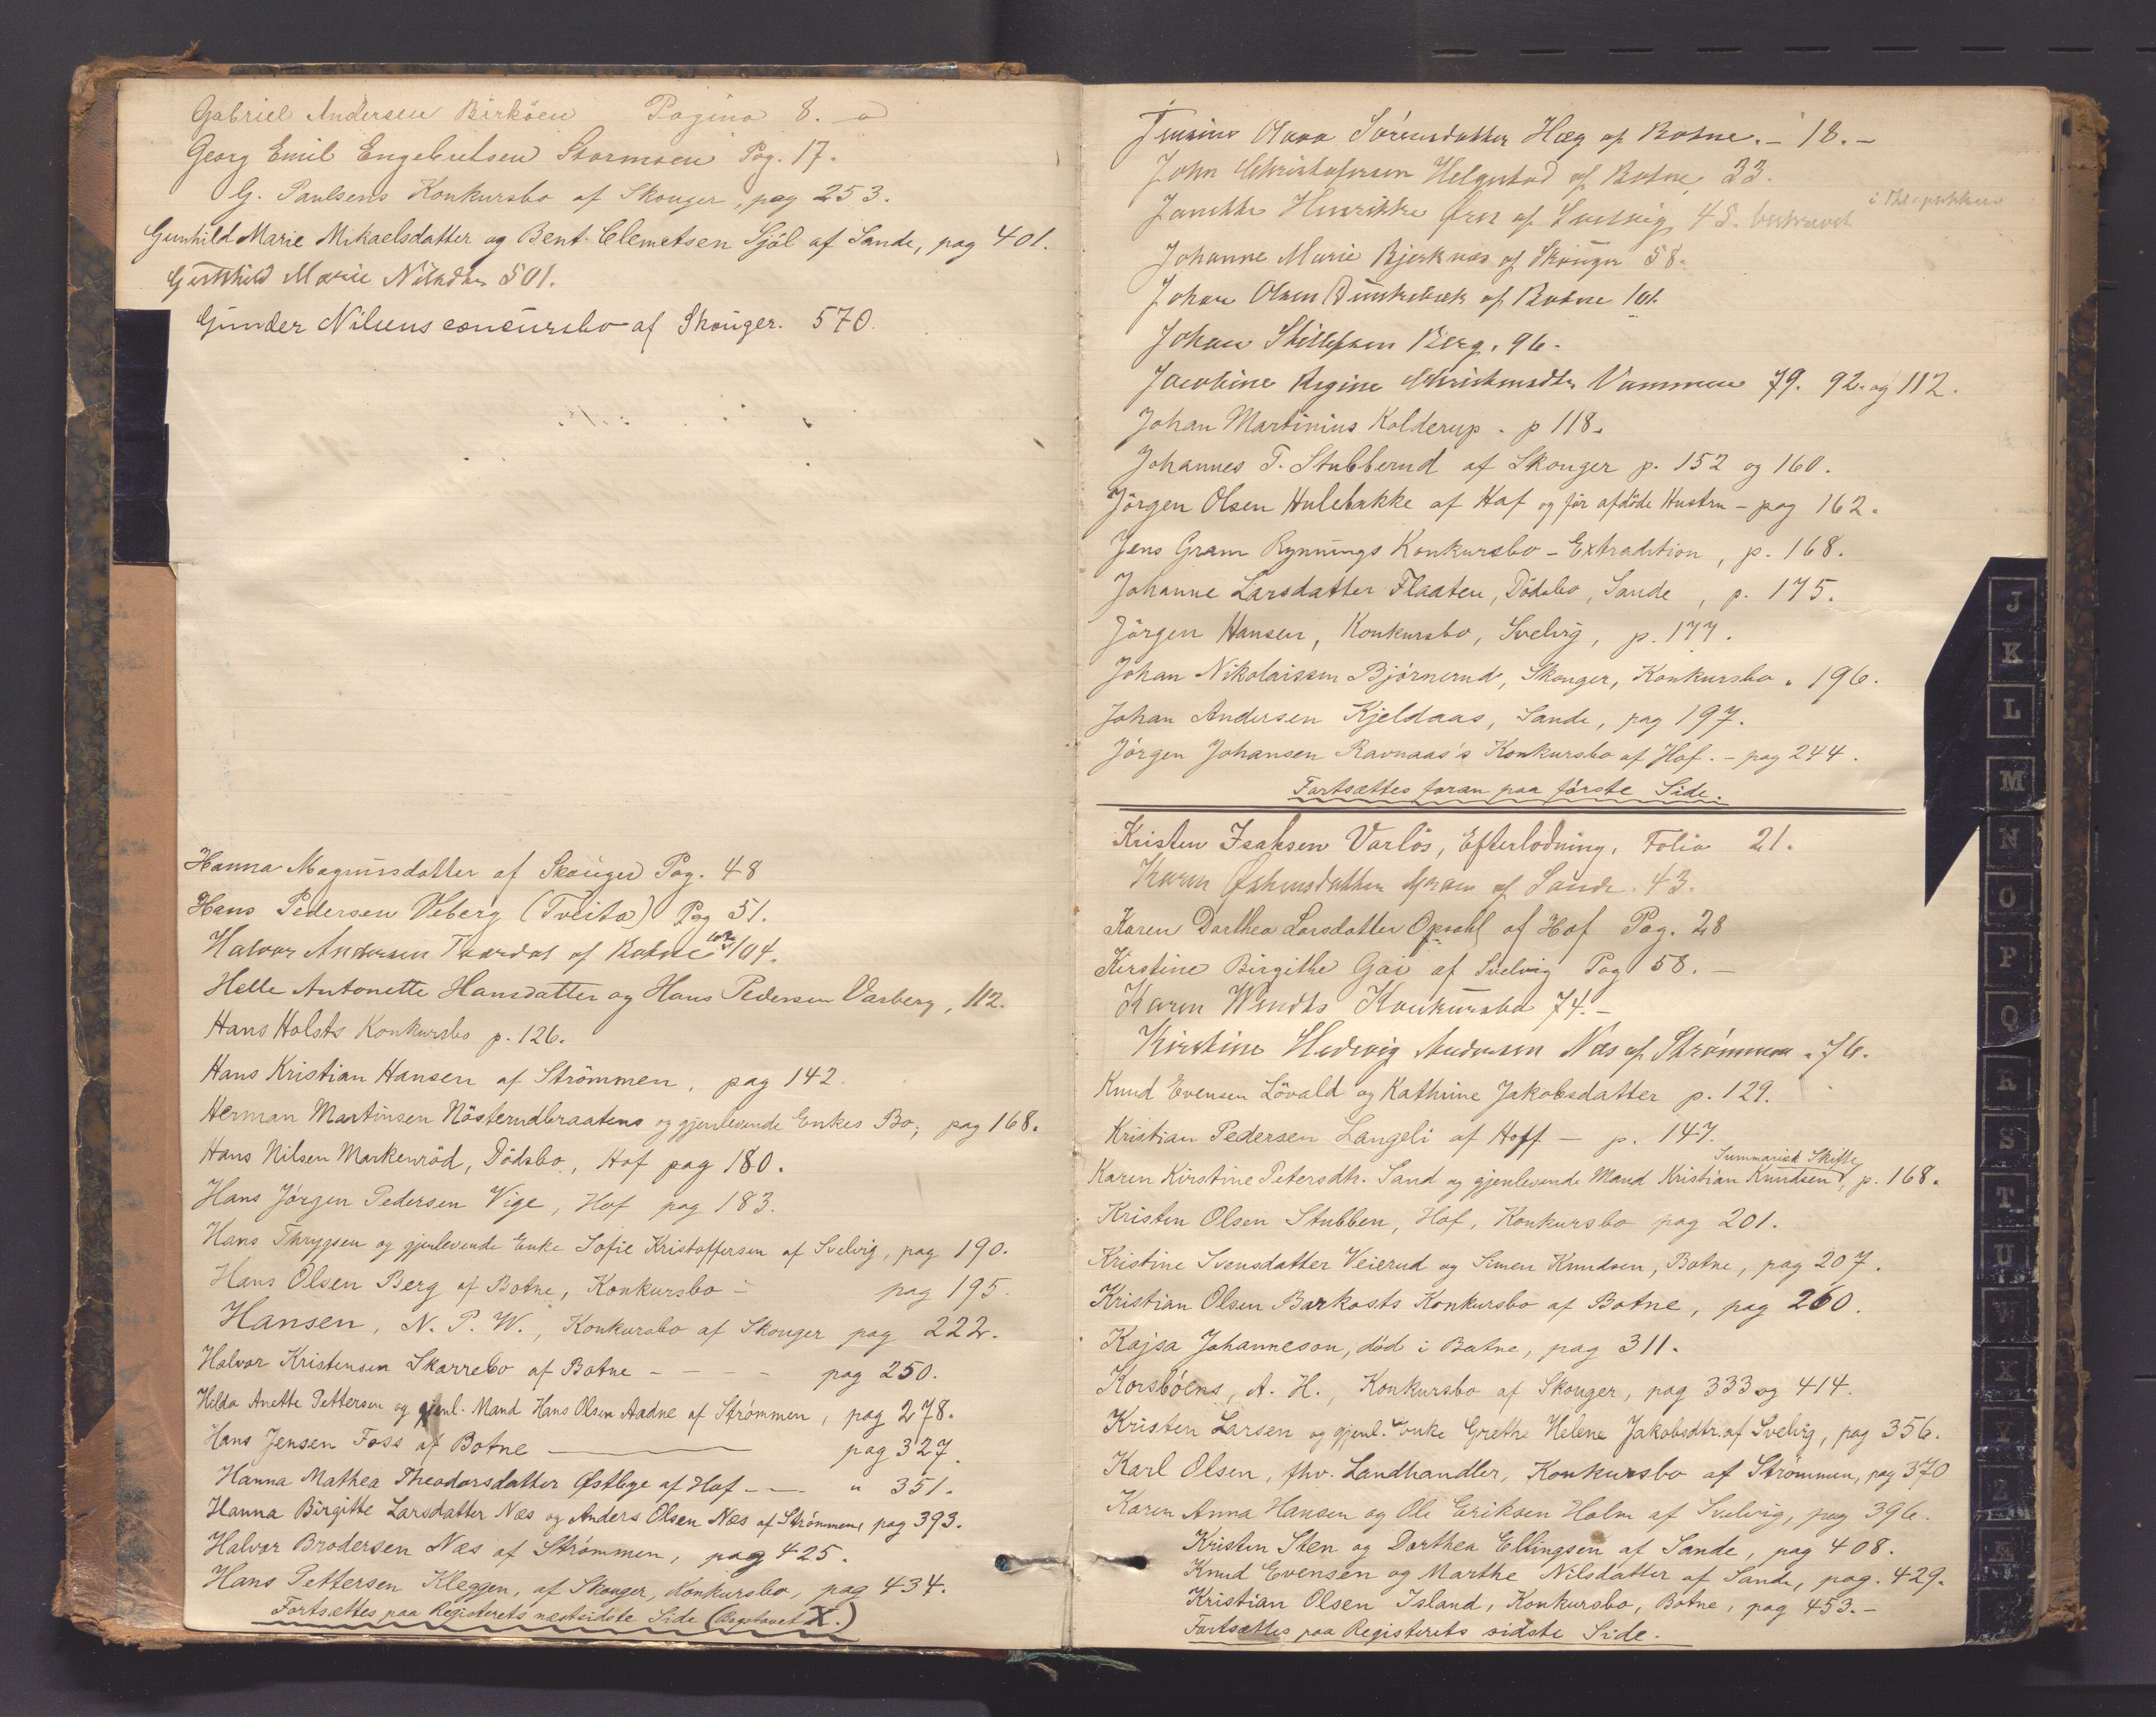 Gabriel Andersen Birköen Pagina 8.
Georg Emil Engebretsen Stormoen Pag. 17.
G. Paulsens Konkursbo af Skouger, pag 253.
Gunhild Marie Mikaelsdatter og Bent Clemetsen Sjöl af Sande, pag 401.
Marie 501.
Gunder Nilsens concursbo af Skouger. 570.
Hanna Magnusdatter af Skouger Pag. 48
Hans Pedersen Veberg (Tveita) Pag 51.
Halvor Andersen af Botne 104.
Helle Antonette Hansdatter og Hans Pedersen Varberg, 112.
Hans Holsts Konkursbo p. 126.
Hans Kristian Hansen af Strömmen, pag 142.
Herman Martinsen Nösterudbraatens og gjenlevende Enkes Bo, pag 168.
Hans Nilsen Markenröd, Dödsbo, Hof pag 180.
Hans Jörgen Pedersen Vige, Hof pag 183.
Hans Thrygsen og gjenlevende Enke Sofie Kristoffersen af Svelvig, pag 190.
Hans Olsen Berg af Botne, Konkursbo - pag 195.
Hansen, N. P. W., Konkursbo af Skouger pag 222.
Halvor Kristensen Skarrebo af Botne - - - - pag 250.
Hilda Anette Pettersen og gjenl. Mand Hans Olsen Aadne af Strömmen, pag 278.
Hans Jensen Foss af Botne — pag 327.
Hanna Mathea Theodorsdatter Østbye af Hof - - - " 351.
Hanna Birgitte Larsdatter Næs og Anders Olsen Næs af Strömmen, pag 393.
Halvor Brodersen Næs af Strömmen, pag 425.
Hans Pettersen Kleggen, af Skouger, Konkursbo, pag 434.
Fortsættes paa Registerets næstsidste Side (Bogstavet X.)
Sörensdatter Hæg af Botne. - 18. -
John Christofersen Helgestad af Botne 33.
i
Henrikke af Svelvig 45.
Johanne Marie Bjerknæs af Skouger 58.
Johan Olsen af Botne 101.
Johan Berg. 96.
Jacobine Regine 79. 92. og 112.
Johan Martinius Kolderup. p 118.
Johannes T. Stubberud af Skouger p. 152 og 160.
Jörgen Olsen Hulebakke af Hof og før afdöde Hustru - pag 162.
Jens Gram Rynnings Konkursbo - Extradition, p. 168.
Johanne Larsdatter Flaaten, Dödsbo, Sande, p. 175.
Jörgen Hansen, Konkursbo, Svelvig, p. 177.
Johan Nikolaissen Björnerud, Skouger, Konkursbo. 196.
Johan Andersen Kjeldaas, Sande, pag 197.
Jörgen Johansen Ravnaas's Konkursbo af Hof. - pag 244.
Fortsættes foran paa förste Side.
Kristen Isaksen Varlös, Efterlodning, Folio 21.
Karen af Sande. 43.
Karen Dorthea Larsdatter Opsahl af Hof Pag. 28
Kirstine Birgithe Gai af Svelvig Pag 58. -
Karen Wendts Konkursbo 74. -
Kirstine Hedevig Andersen Næs af Strömmen. 76.
Knud Evensen Lövald og Kathrine Jakobsdatter p. 129.
Kristian Pedersen Langeli af Hoff - p. 147.
Summarisk Skifte
Karen Kirstine Petersdtr. Sand og gjenlevende Mand Kristian Knudsen, p. 168.
Kristen Olsen Stubben, Hof, Konkursbo pag 201.
Kristine Svensdatter Veierud og Simen Knudsen, Botne, pag 207.
Kristian Olsen Barkosts Konkursbo af Botne, pag 260.
Kajsa Johanneson, död i Botne, pag 311.
Korsböens, A. H., Konkursbo af Skouger, pag 333 og 414.
Kristen Larsen og gjenl. Enke Grethe Helene Jakobsdtr. af Svelvig, pag 356.
Karl Olsen, fhv. Landhandler, Konkursbo af Strömmen, pag 370
Karen Anna Hansen og Ole Eriksen Holm af Svelvig, pag 396.
Kristen Sten og Dorthea Ellingsen af Sande, pag 408.
Knud Evensen og Marthe Nilsdatter af Sande, pag. 429.
Kristian Olsen Island, Konkursbo, Botne, pag 453. -
Fortsættes paa Registerets sidste Side.
J
K
L
M
N
O
P
Q
R
S
T
U
W
X
Y
Z
Æ